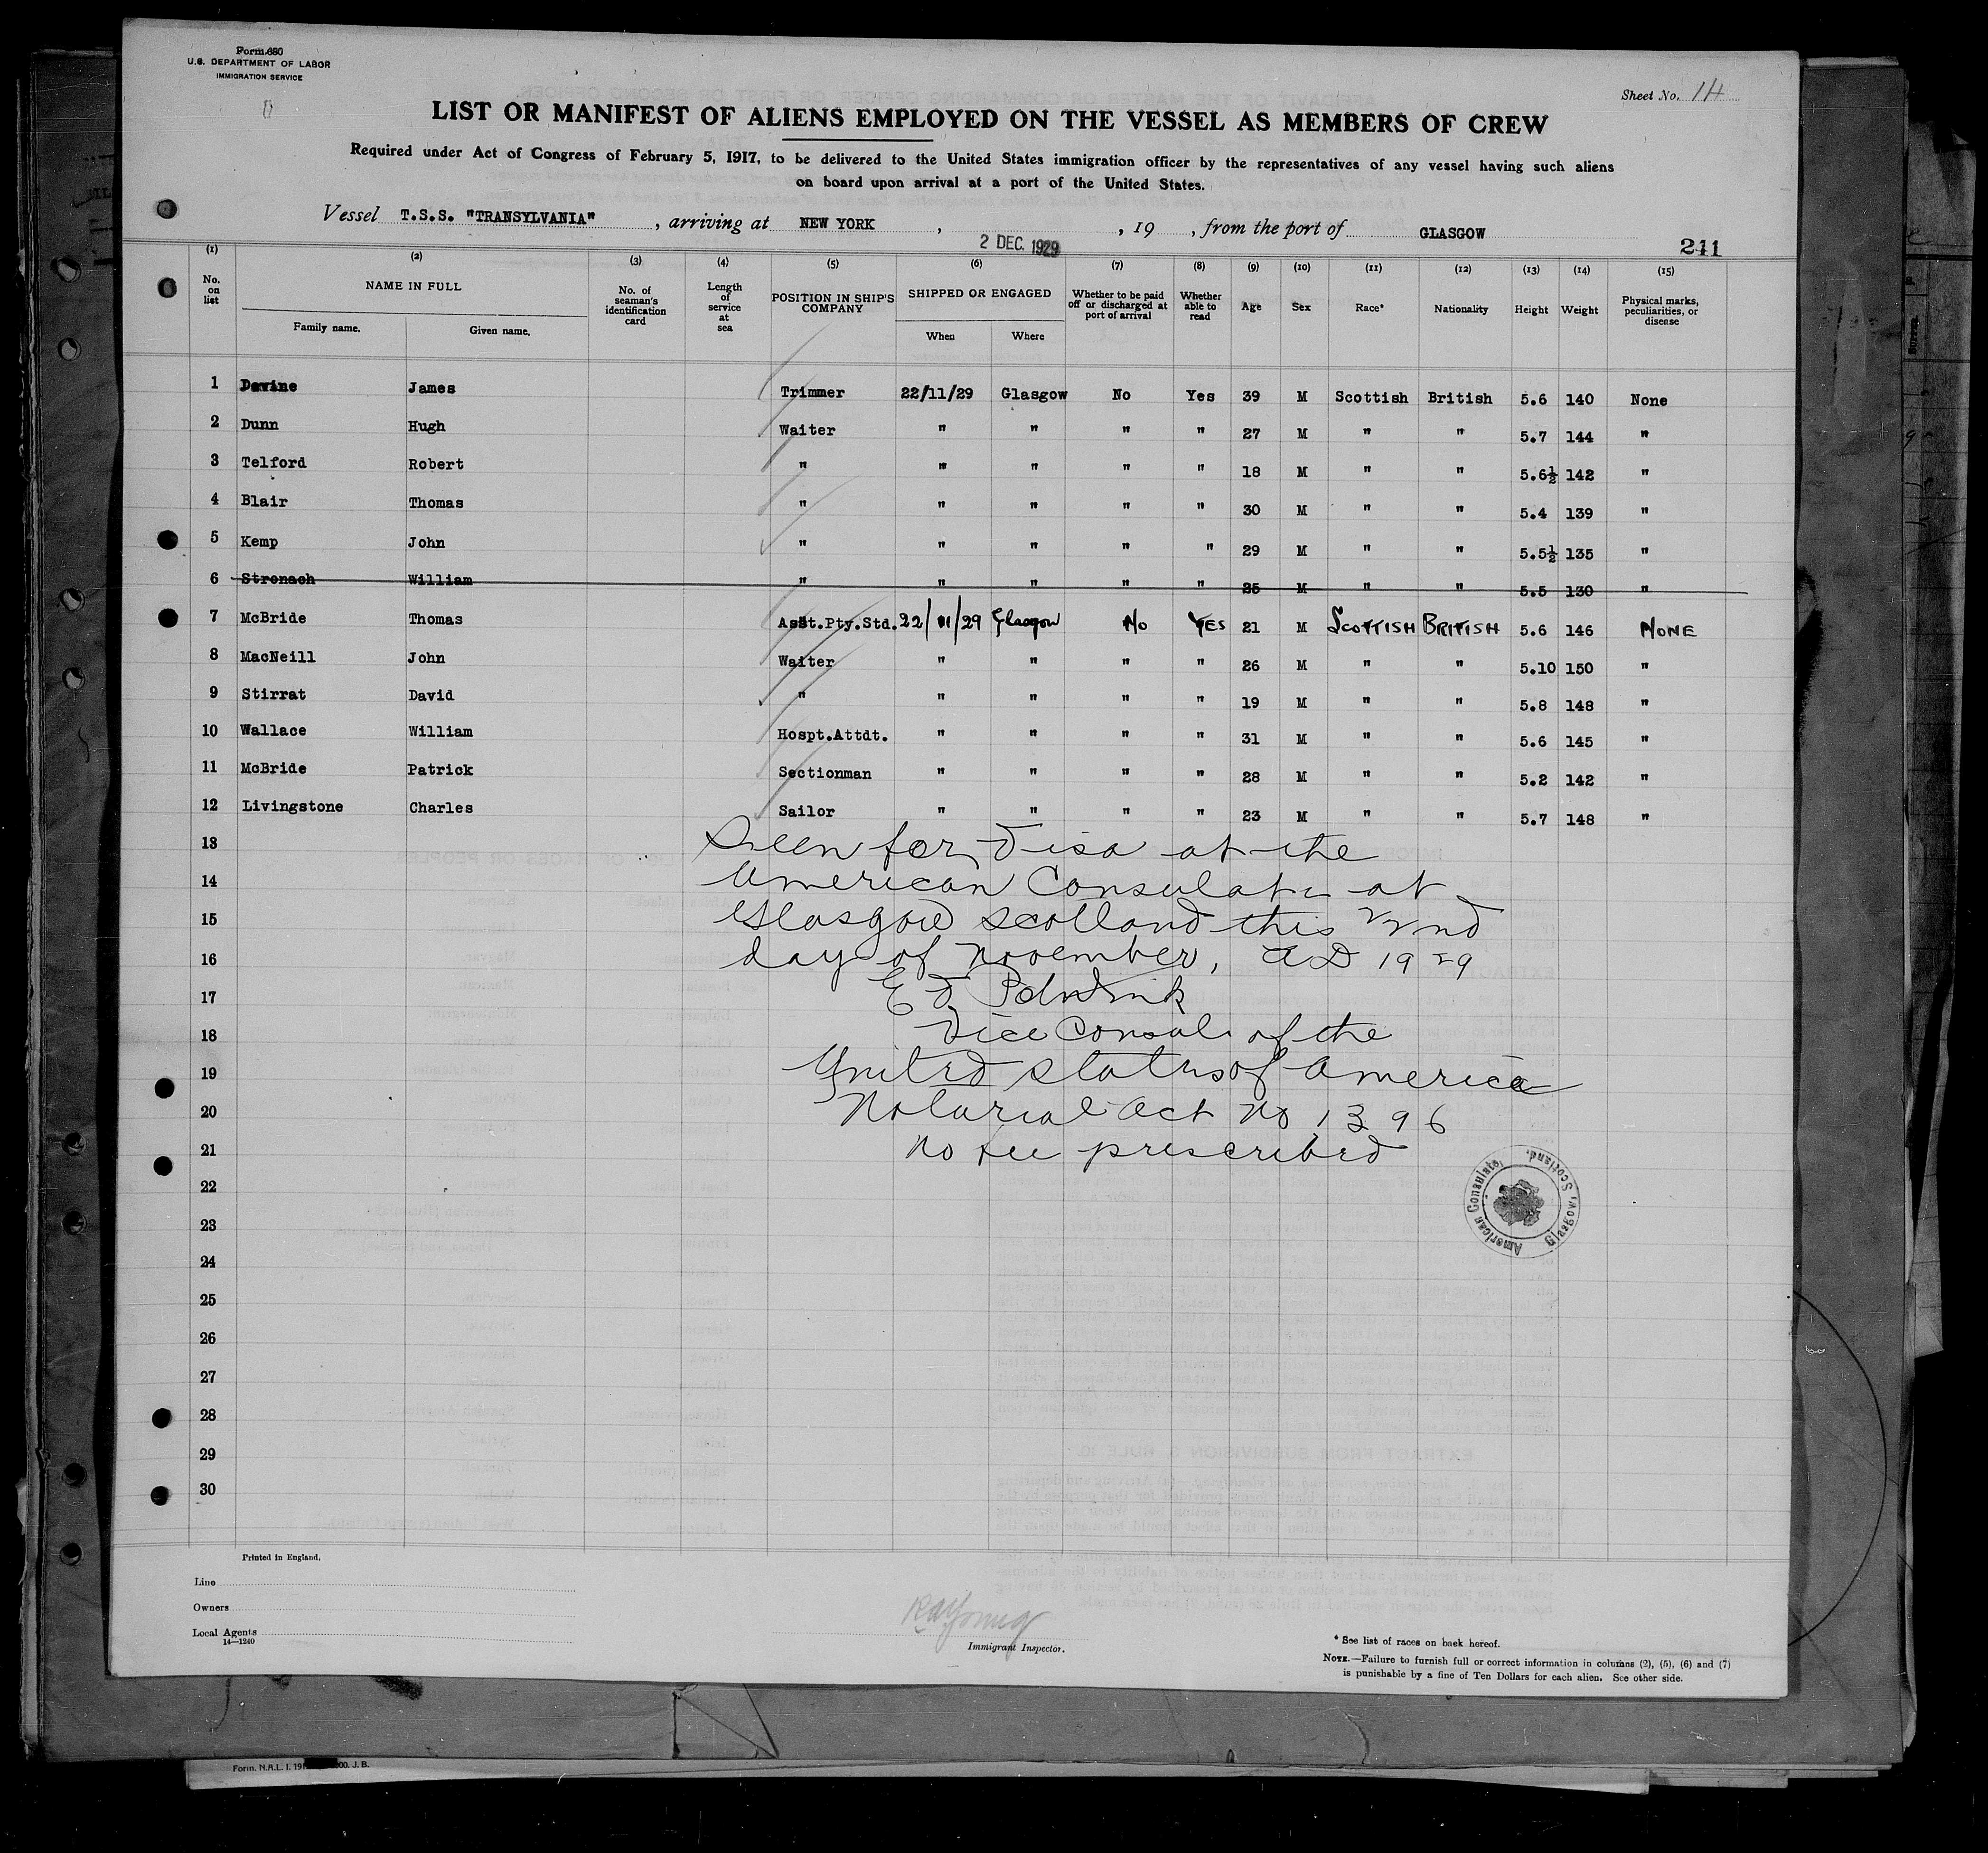 Form 680
U.S. DEPARTMENT OF LABOR
IMMIGRATION SERVICE
Sheet No. 14
LIST OR MANIFEST OF ALIENS EMPLOYED ON THE VESSEL AS MEMBERS OF CREW
Required under Act of Congress of February 5, 1917, to be delivered to the United States immigration officer by the representatives of any vessel having such aliens
on board upon arrival at a port of the United States.
Vessel T.S.S. "TRANSYLVANIA" , arriving at NEW YORK , 2 DEC. 1929 , 19 , from the port of GLASGOW
211
(1) (2) (3) (4) (5) (6) (7) (8) (9) (10) (11) (12) (13) (14) (15)
No. on list NAME IN FULL Family name. Given name. No. of seaman's identification card Length of service at sea POSITION IN SHIP'S COMPANY SHIPPED OR ENGAGED When Where Whether to be paid off or discharged at port of arrival Whether able to read Age Sex Race* Nationality Height Weight Physical marks, peculiarities, or disease
1 Devine James Trimmer 22/11/29 Glasgow No Yes 39 M Scottish British 5.6 140 None
2 Dunn Hugh Waiter " " " " 27 M " " 5.7 144 "
3 Telford Robert " " " " " 18 M " " 5.6½ 142 "
4 Blair Thomas " " " " " 30 M " " 5.4 139 "
5 Kemp John " " " " " 29 M " " 5.5½ 135 "
6 Stronach William " " " " " 25 M " " 5.5 130 "
7 McBride Thomas Asst.Pty.Std. 22/11/29 Glasgow No YES 21 M SCOTTISH BRITISH 5.6 146 NONE
8 MacNeill John Waiter " " " " 26 M " " 5.10 150 "
9 Stirrat David " " " " " 19 M " " 5.8 148 "
10 Wallace William Hospt.Attdt. " " " " 31 M " " 5.6 145 "
11 McBride Patrick Sectionman " " " " 28 M " " 5.2 142 "
12 Livingstone Charles Sailor " " " " 23 M " " 5.7 148 "
13 Seen for Visa at the
14 American Consulate at
15 Glasgow Scotland this 22nd
16 day of November, AD 1929
17
18 Vice Consul of the
19 United States of America
20 Notarial Act No 1396
21 No fee prescribed
American Consulate, Glasgow, Scotland.
22
23
24
25
26
27
28
29
30
Printed in England.
Line
Owners
Local Agents
14—1240
Immigrant Inspector.
* See list of races on back hereof.
NOTE.—Failure to furnish full or correct information in columns (2), (5), (6) and (7)
is punishable by a fine of Ten Dollars for each alien. See other side.
Form. N.A.L. I. 19 000. J. B.